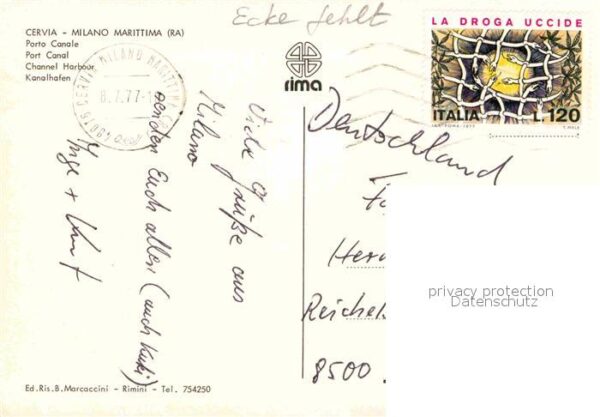 Ecke fehlt
CERVIA - MILANO MARITTIMA (RA)
Porto Canale
Port Canal
Channel Harbour
Kanalhafen
CERVIA MILANO MARITTIMA
8.7.77
rima
LA DROGA UCCIDE
ITALIA L.120
Viele Grüße aus
Milano
senden Euch allen (auch Kuki)
Inge + Kurt
Deutschland
Fa
Her
Reichels
8500
privacy protection
Datenschutz
Ed. Ris. B. Marcaccini - Rimini - Tel. 754250